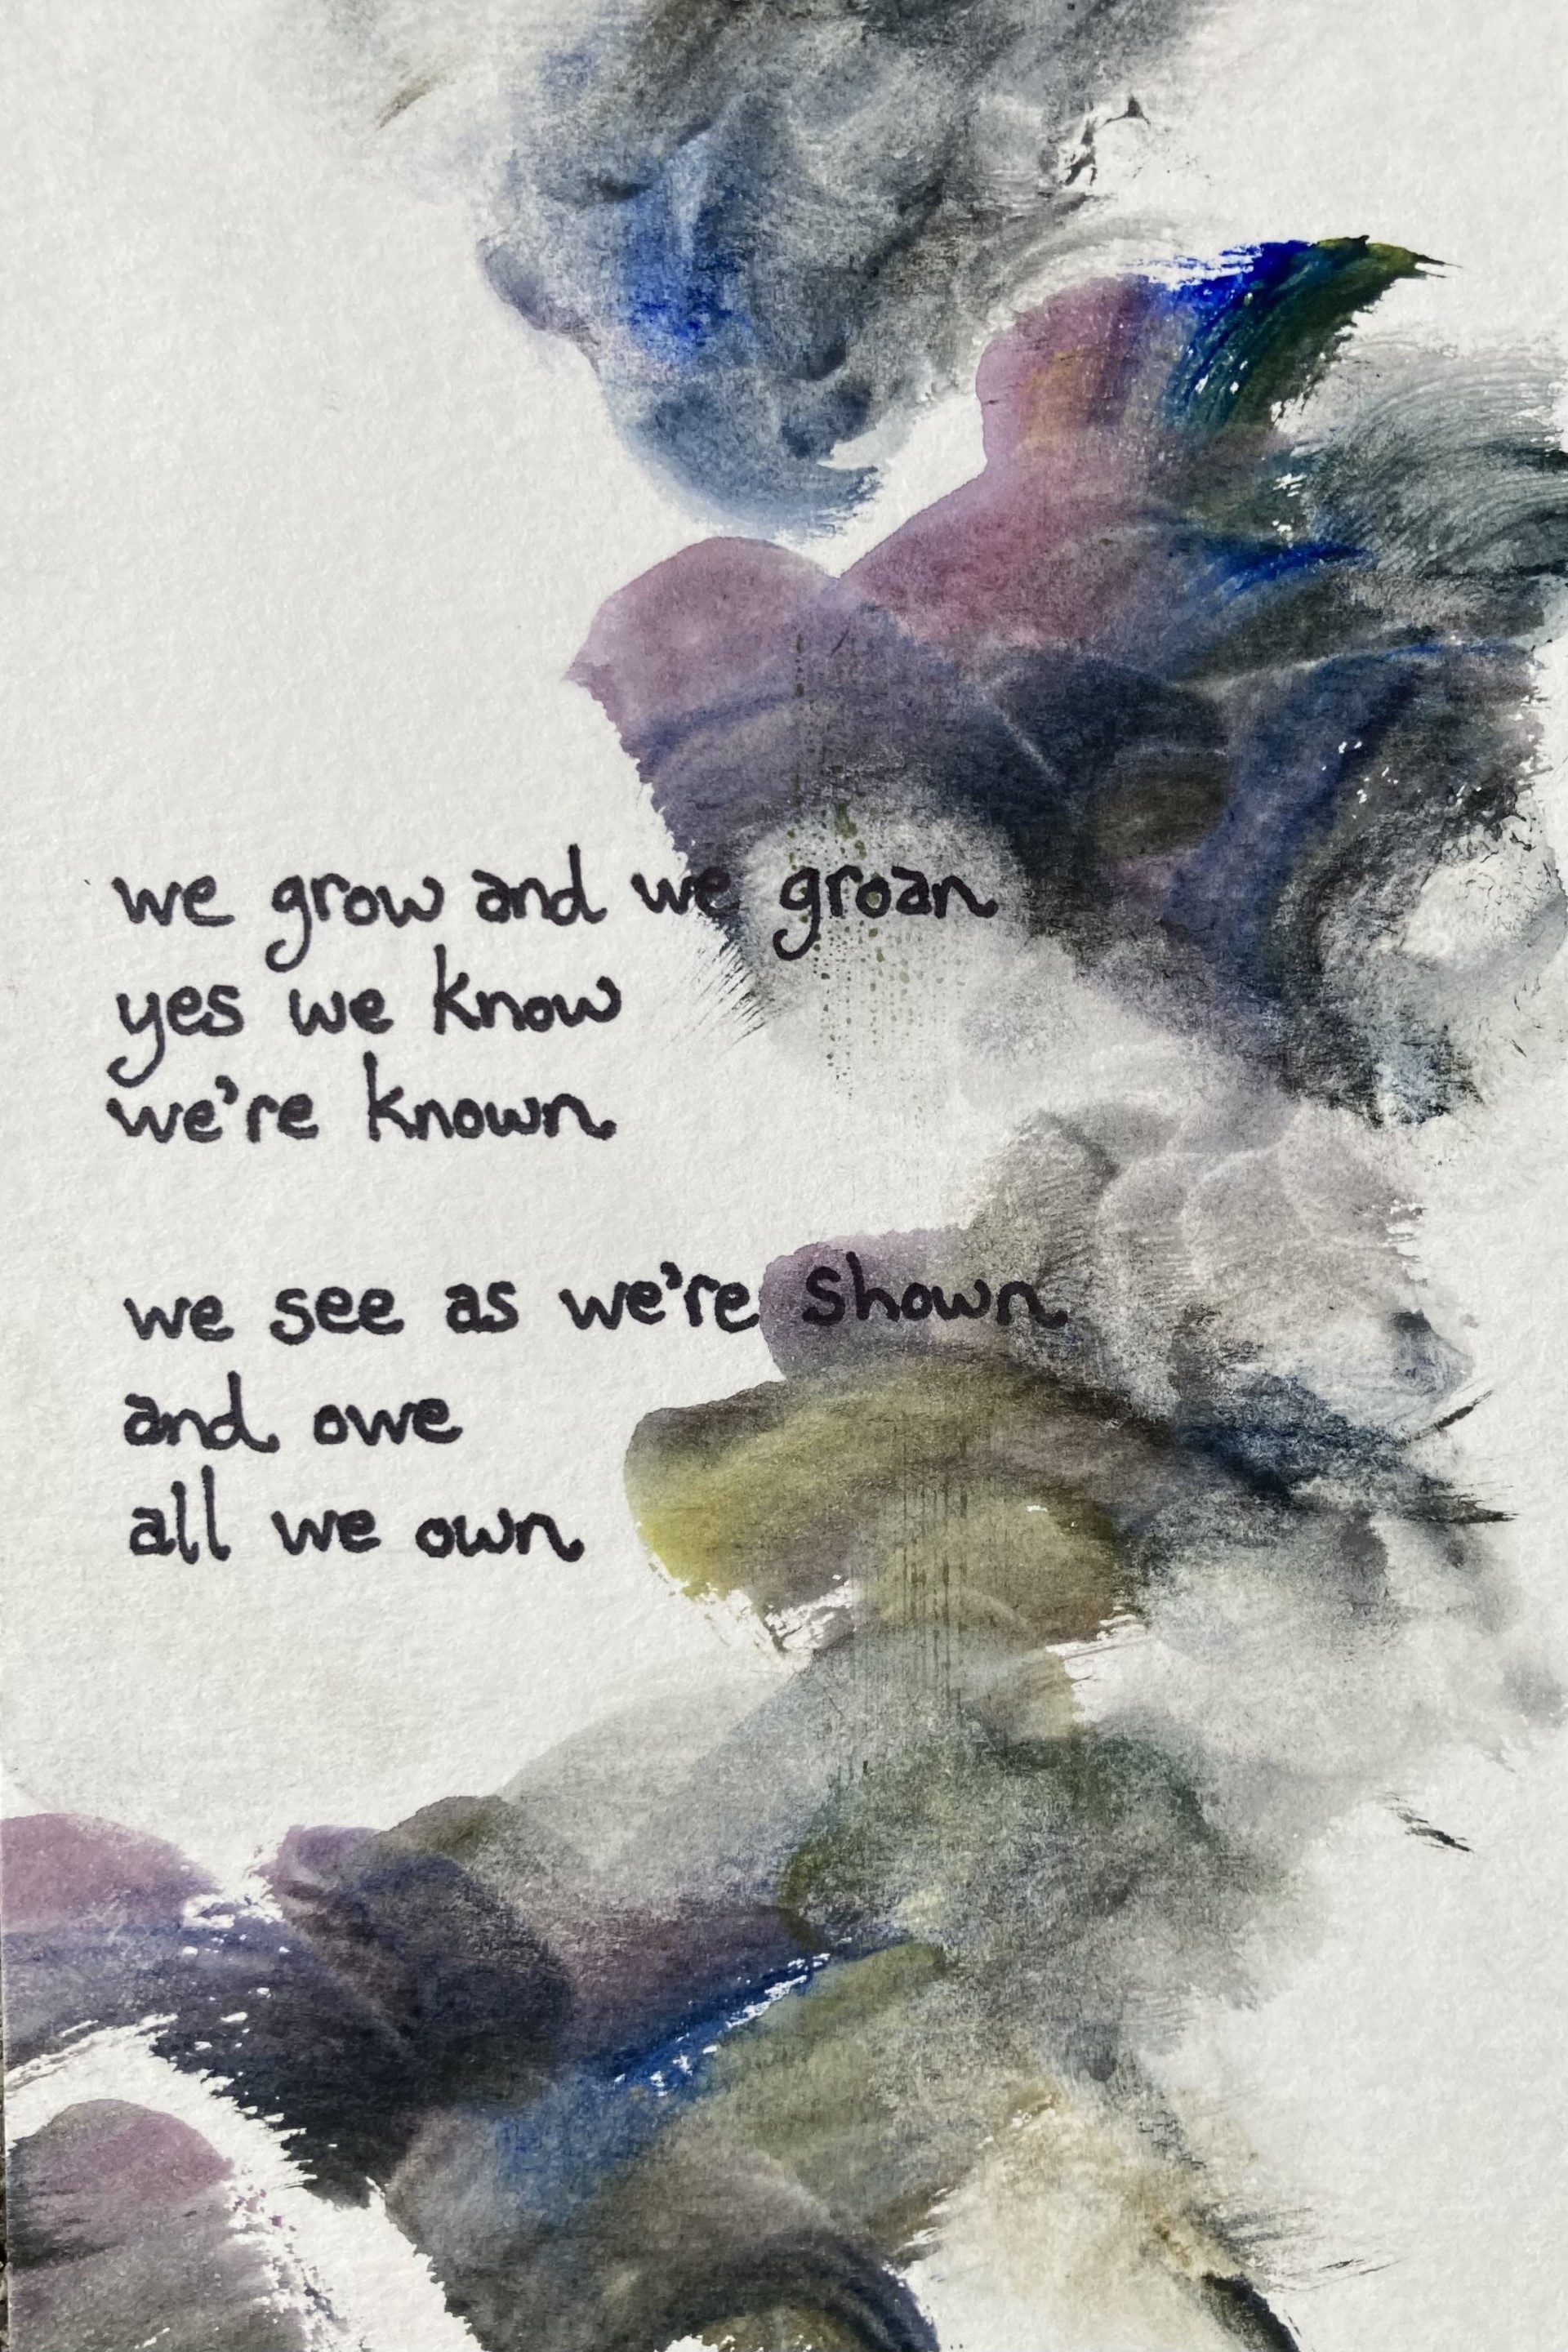 we grow and we groan
yes we know
we're known
we see as we're shown
and owe
all we own